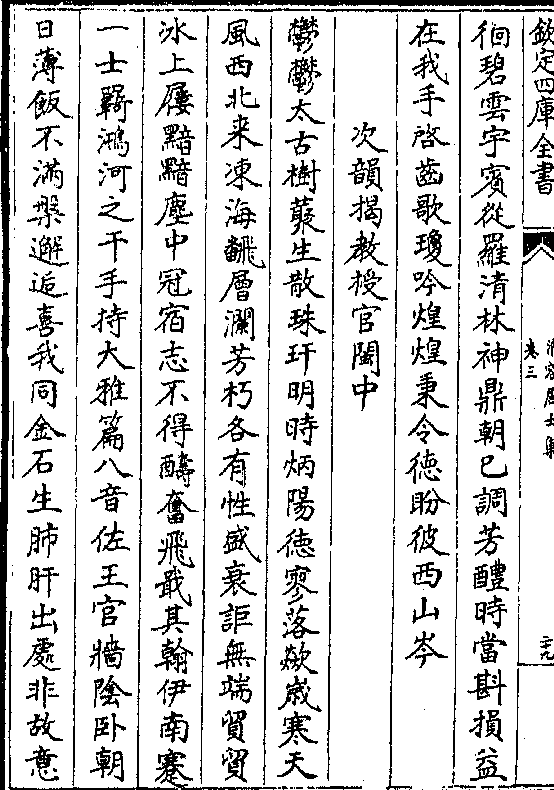 欽定四庫全書
卷三
徊碧雲宇賓從羅清林神鼎朝已調芳醴時當斟損益
在我手啓齒歌瓊吟煌煌秉令德盼彼西山岑
次韻揭教授官閩中
鬱鬱太古樹蕞生散珠玕明時炳陽德寥落歘歲寒天
風西北来凍海飜層瀾芳朽各有性盛衰詎無端貿貿
冰上屨黯黯塵中冠宿志不得酬奮飛戢其翰伊南蹇
一士羈鴻河之干手持大雅篇八音佐王官牆陰卧朝
日薄飯不滿槃邂逅喜我同金石生肺肝出處非故意